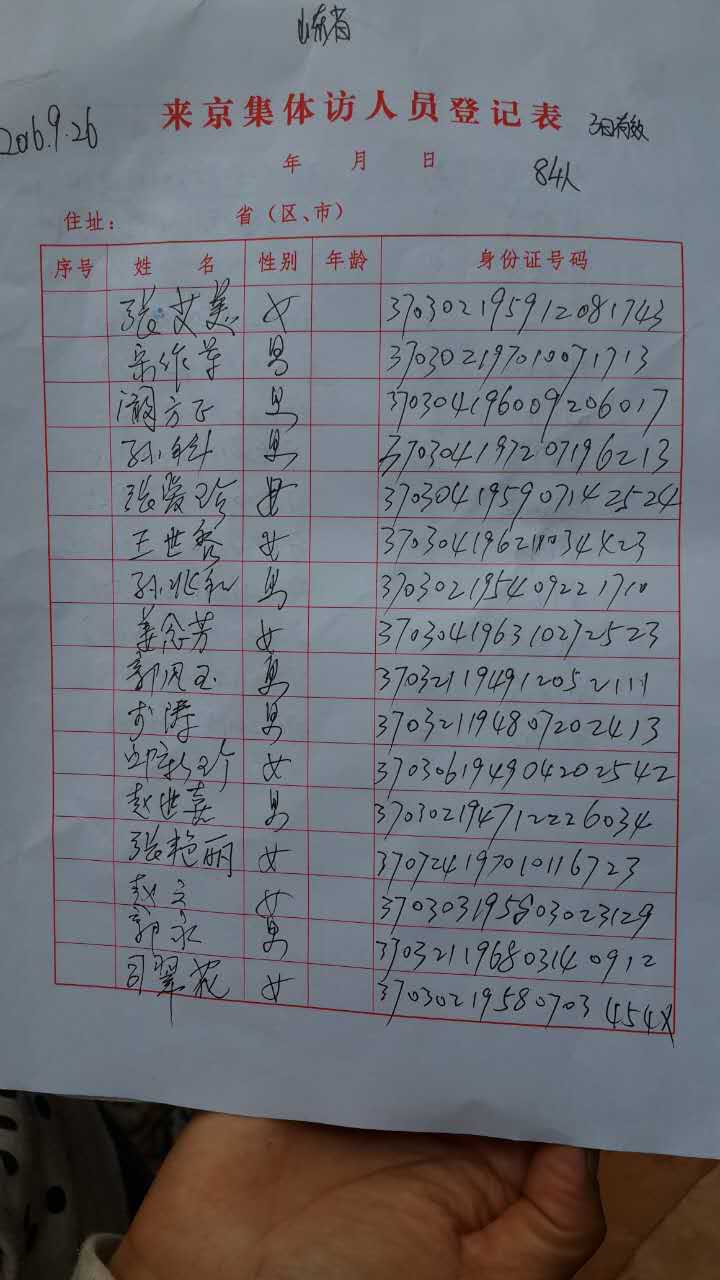 山东省
来京集体访人员登记表 3日有效
2016.9.26
年 月 日
84人
住址： 省（区、市）
序号 姓 名 性别 年龄 身份证号码
张艾美 女 370302195912081743
宋作 男 370302197010071713
方 男 370304196009206017
孙 男 370304197207196213
张爱玲 女 370304195907142524
王世 女
孙兆和 男 370302195409221710
姜念芳 女 370304196310272523
郭凤玉 男 370321194912052111
涛 男 370321194807202413
邱 女 370306194904202542
赵世嘉 男 370302194712226034
张艳丽 女
赵立 女
郭永 男 370321196803140912
司翠花 女 37030219580703454X